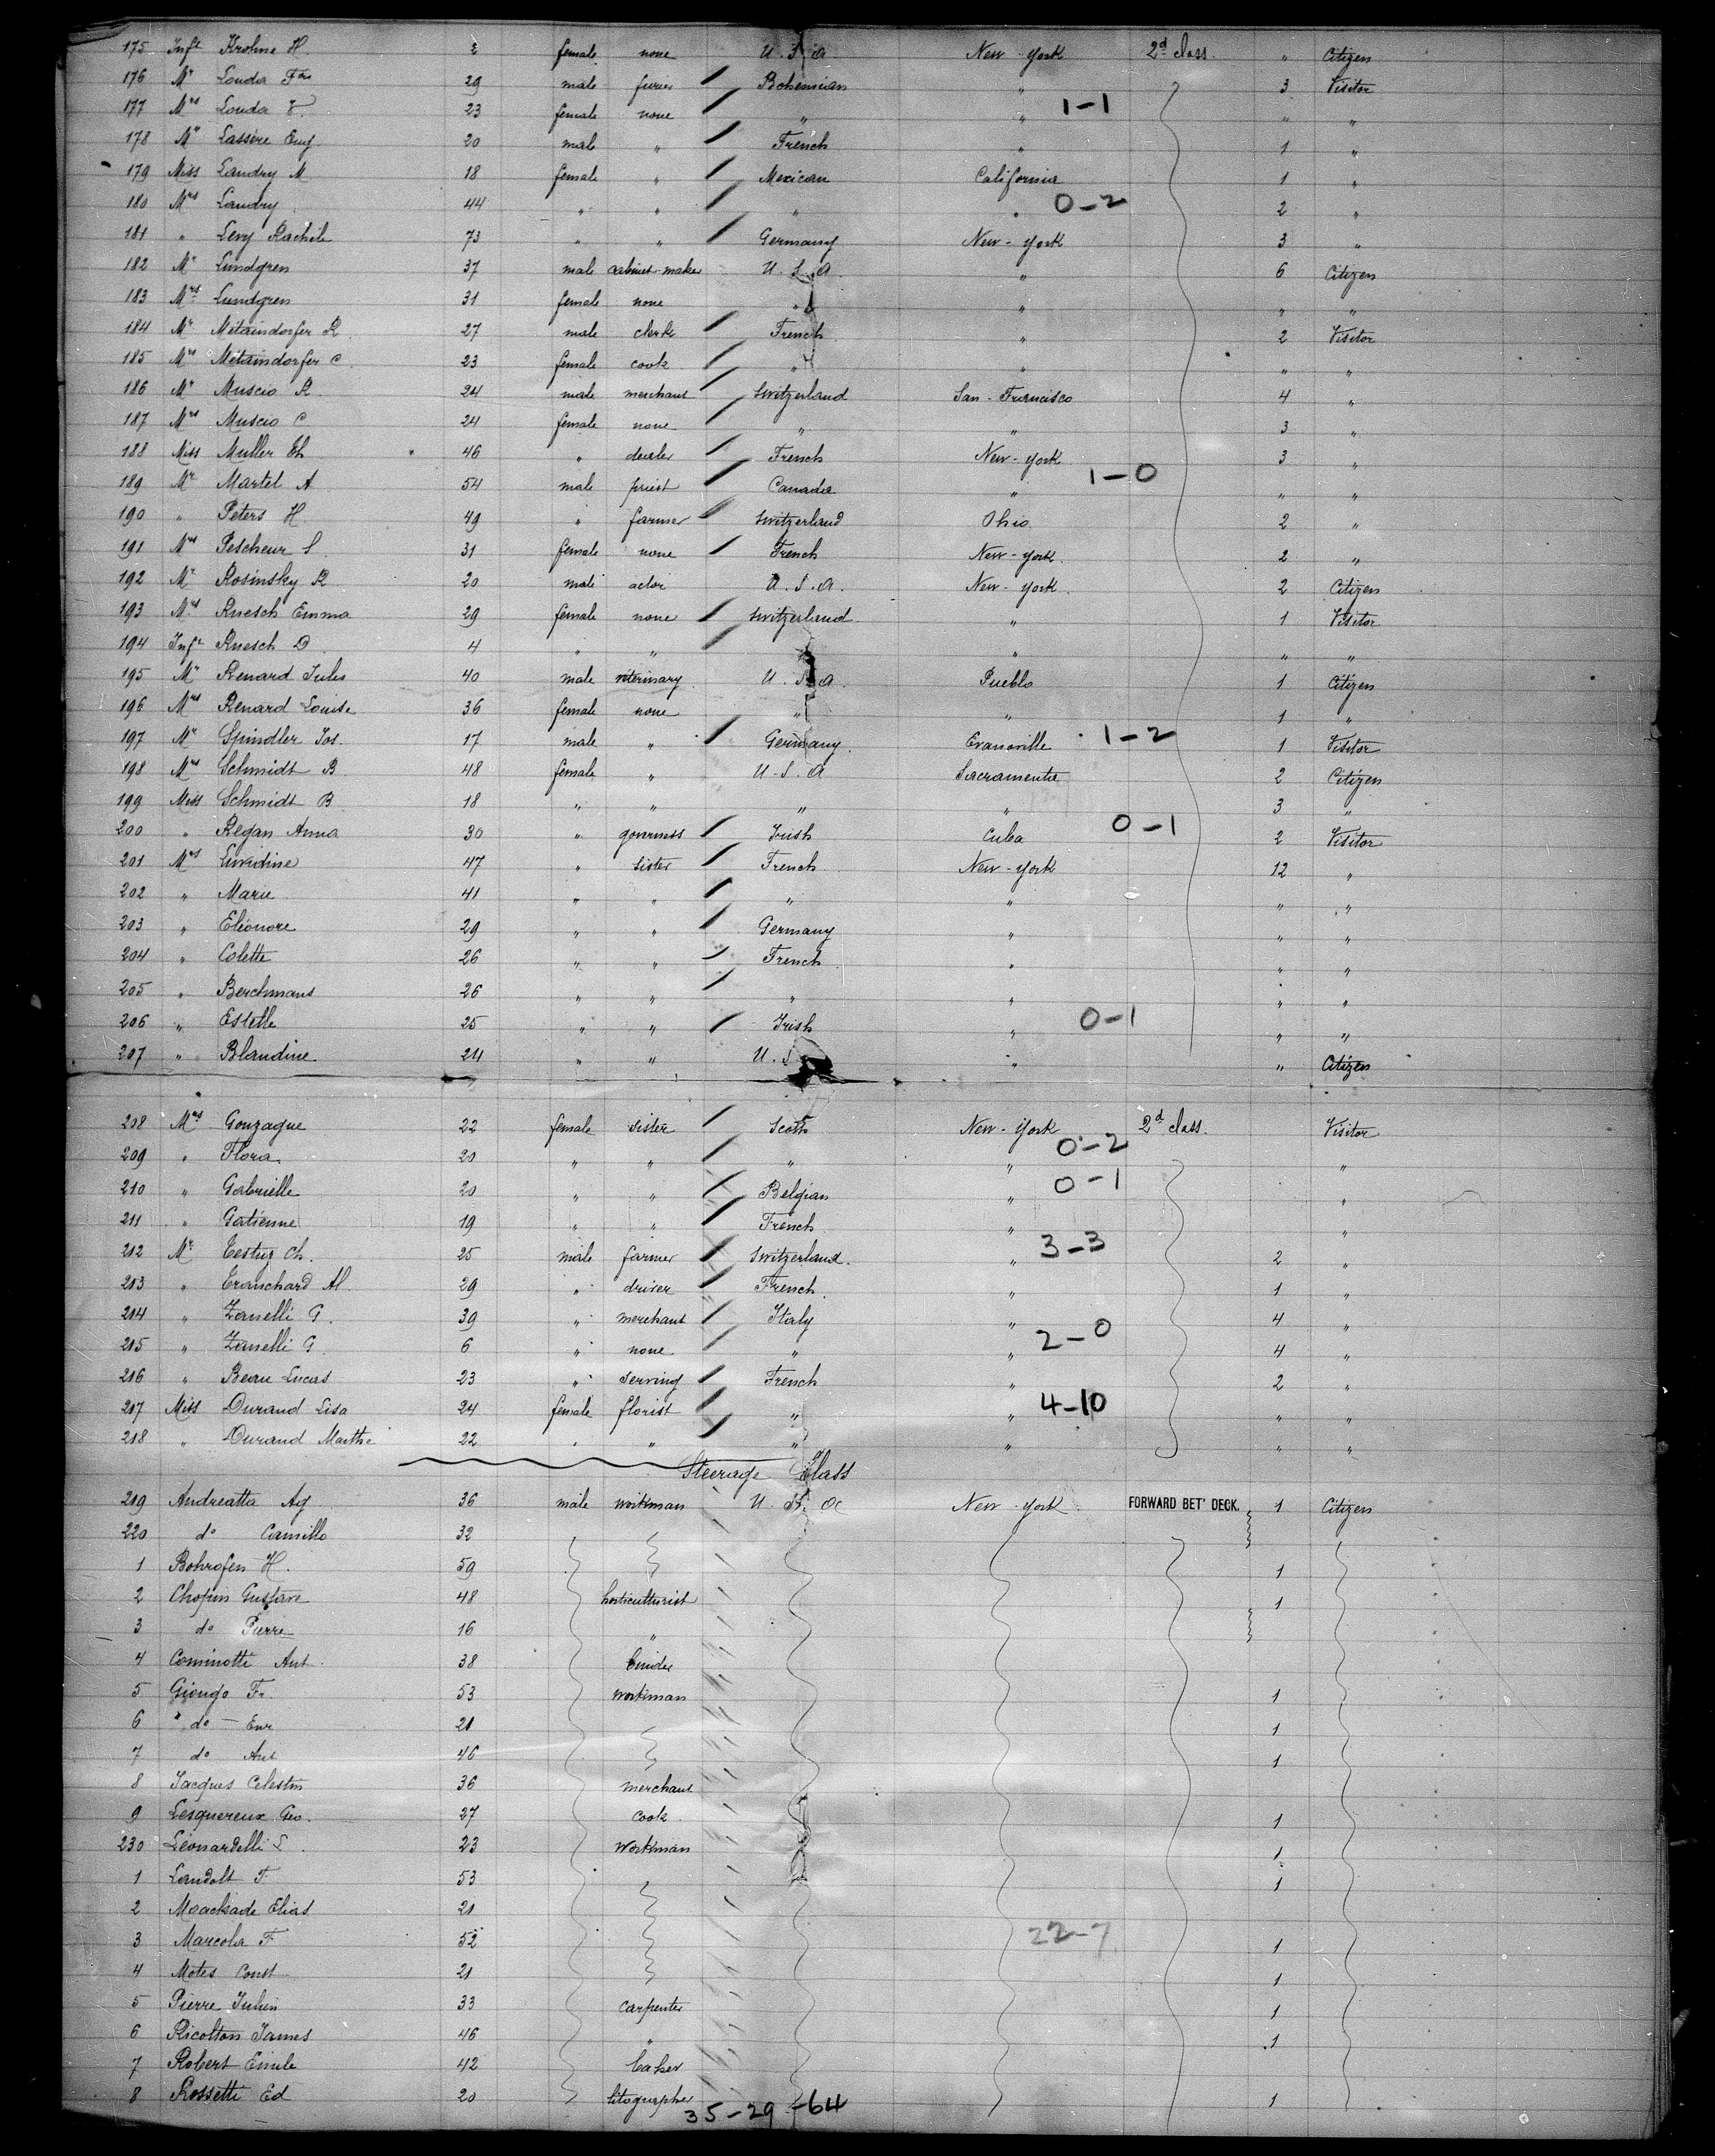 175 Inft Krohne H. 2 female none U. S. A New-York 2d class. " Citizen
176 Mr Louda Fcs 29 male furier Bohemian " 3 Visitor
177 Mrs Louda F. 23 female none " " 1-1 " "
178 Mr Lassère Eug 20 male " French " 1 "
179 Miss Landry M 18 female " Mexican California 1 "
180 Mrs Landry 44 " " " " 0-2 2 "
181 " Levy Rachile 73 " " Germany New-York 3 "
182 Mr Lundgren 37 male cabinet-maker U. S. A. " 6 Citizen
183 Mrs Lundgren 31 female none " " " "
184 Mr Metaindorfer R 27 male clerk French " 2 Visitor
185 Mrs Metaindorfer C 23 female cook " " " "
186 Mr Muscio R. 24 male merchant Switzerland San-Francisco 4 "
187 Mrs Muscio C 24 female none " " 3 "
188 Miss Muller Eh 46 " dealer French New-York 3 "
189 Mr Martel A 54 male priest Canada " 1-0 " "
190 " Peters H. 49 " farmer Switzerland Ohio 2 "
191 Mrs Pescheur S. 31 female none French New-York. 2 "
192 Mr Rosinsky R 20 male actor U. S. A. New-York. 2 Citizen
193 Mrs Ruesch Emma 29 female none Switzerland " 1 Visitor
194 Inft Ruesch D. 4 " " " " " "
195 Mr Renard Jules 40 male veterinary U. S. A. Pueblo 1 Citizen
196 Mrs Renard Louise 36 female none " " 1 "
197 Mr Spindler Jos. 17 male " Germany. Evansville 1-2 1 Visitor
198 Mrs Schmidt B 48 female " U. S. A Sacramento 2 Citizen
199 Miss Schmidt B 18 " " " " 3 "
200 " Regan Anna 30 " governess Irish Cuba 0-1 2 Visitor
201 Mrs Lividine 47 " Sister French New-York 12 "
202 " Marie 41 " " " " " "
203 " Eléonore 29 " " Germany " " "
204 " Colette 26 " " French " " "
205 " Berchmans 26 " " " " " "
206 " Estelle 25 " " Irish " 0-1 " "
207 " Blandine 24 " " U. S. " " Citizen
208 Mrs Gonzague 22 female sister Scoth New-York 2d class. Visitor
209 " Flora 20 " " " " 0-2 "
210 " Gabrielle 20 " " Belgian " 0-1 "
211 " Gatienne 19 " " French " "
212 Mr Testuz Ch. 25 male farmer Switzerland. " 3-3 2 "
213 " Tranchard Al. 29 " driver French. " 1 "
214 " Zanelli G. 39 " merchant Italy " 4 "
215 " Zanelli G. 6 " none " " 2-0 4 "
216 " Beau Lucas 23 " serving French " 2 "
217 Miss Durand Lisa 24 female florist " " 4-10 " "
218 " Durand Marthe 22 " " " " " "
Steerage Class
219 Andreatta Ag 36 male workman U. S. A New-York FORWARD BET' DECK. 1 Citizen
220 do Camillo 32
1 Bohrofen H. 59 1
2 Chopin Gustave 48 horticulturist 1
3 do Pierre 16 "
4 Cominotti Ant. 38
5 Giongo Fr. 53 workman 1
6 " do - Enr 21 1
7 do Ant 46 1
8 Jacques Celestin 36 merchant
9 Lesquereux Geo. 27 cook. 1
230 Léonardelli L. 23 workman 1
1 Landolt F. 53 1
2 Moackade Elias 21
3 Marcola F 52 22-7 1
4 Motes Const 21 1
5 Pierre Julien 33 carpenter 1
6 Ricolton James 46 " 1
7 Robert Emile 42 baker
8 Rossetti Ed 20 litographer 1
35-29-64